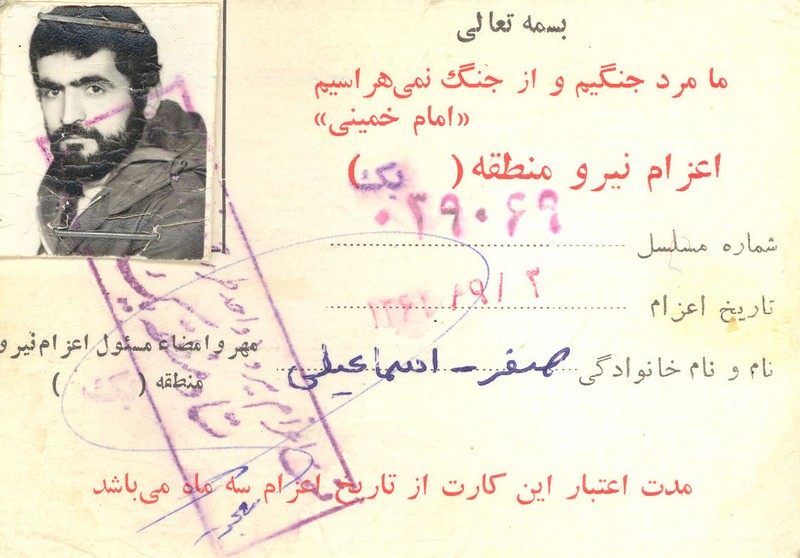 بسمه تعالی
ما مرد جنگیم و از جنگ نمی‌هراسیم
«امام خمینی»
اعزام نیرو منطقه ( یک )
شماره مسلسل ۰۳۹۰۶۹
تاریخ اعزام
نام و نام خانوادگی صفر - اسماعیلی
مهر و امضاء مسئول اعزام نیرو
منطقه ( یک )
مدت اعتبار این کارت از تاریخ اعزام سه ماه می‌باشد